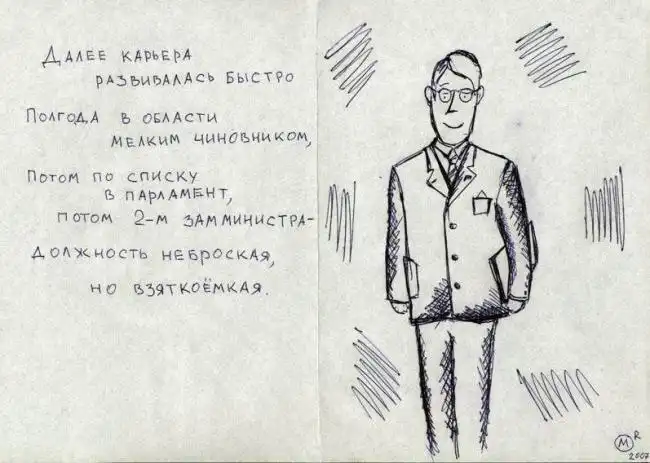 Далее карьера
развивалась быстро
Полгода в области
мелким чиновником,
Потом по списку
в парламент,
потом 2-м замминистра-
должность неброская,
но взяткоёмкая.
M R
2007